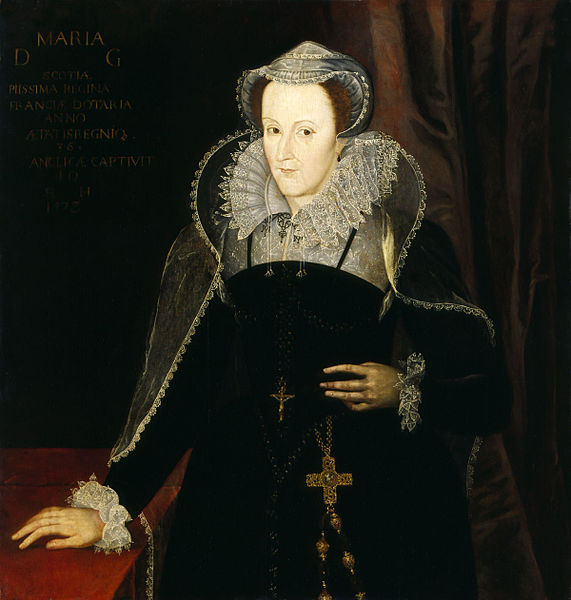 MARIA
D G
SCOTIÆ
PIISSIMA REGINA
FRANCIÆ DOTARIA
ANNO
ÆTATIS REGNIQ
36
ANGLICÆ CAPTIVIT
10
S H
1578